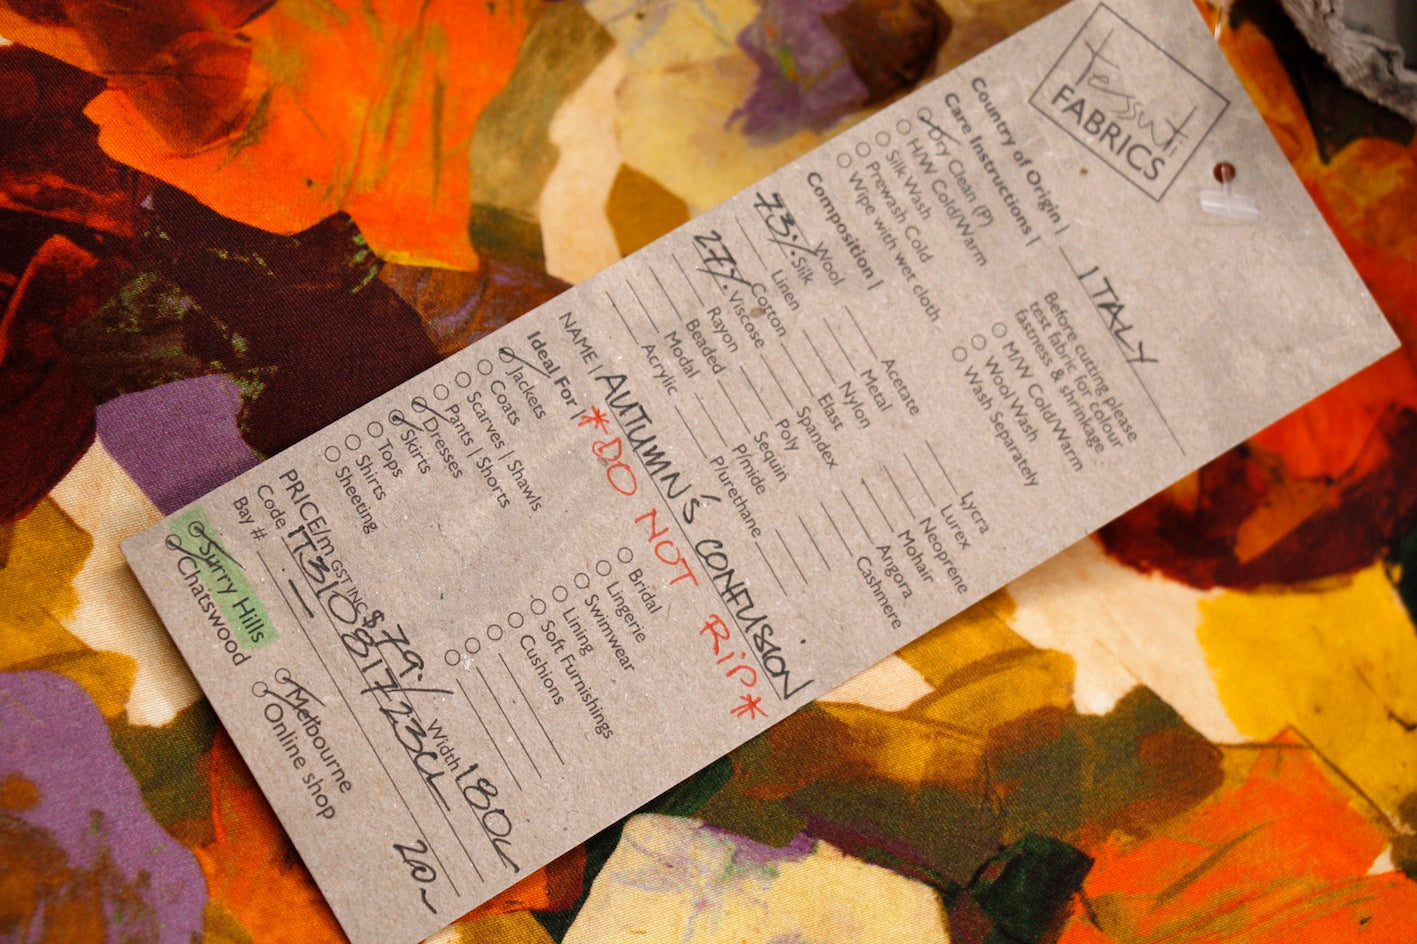 Tessuti
FABRICS
Country of Origin | ITALY
Care Instructions |
Dry Clean (P)
H/W Cold/Warm
Silk Wash
Prewash Cold
Wipe with wet cloth
Before cutting please
test fabric for colour
fastness & shrinkage
M/W Cold/Warm
Wool Wash
Wash Separately
Composition |
Wool
73% Silk
Linen
Cotton
27% Viscose
Rayon
Beaded
Modal
Acrylic
Acetate
Metal
Nylon
Elast
Spandex
Poly
Sequin
P/mide
P/urethane
Lycra
Lurex
Neoprene
Mohair
Angora
Cashmere
NAME | AUTUMN'S CONFUSION
Ideal For | *DO NOT RIP*
Jackets
Coats
Scarves | Shawls
Pants | Shorts
Dresses
Skirts
Tops
Shirts
Sheeting
Bridal
Lingerie
Swimwear
Lining
Soft Furnishings
Cushions
PRICE/m GST INC $79./ Width 180c
Code IT310817/23CL
Bay # — 200~
Surry Hills
Chatswood
Melbourne
Online shop